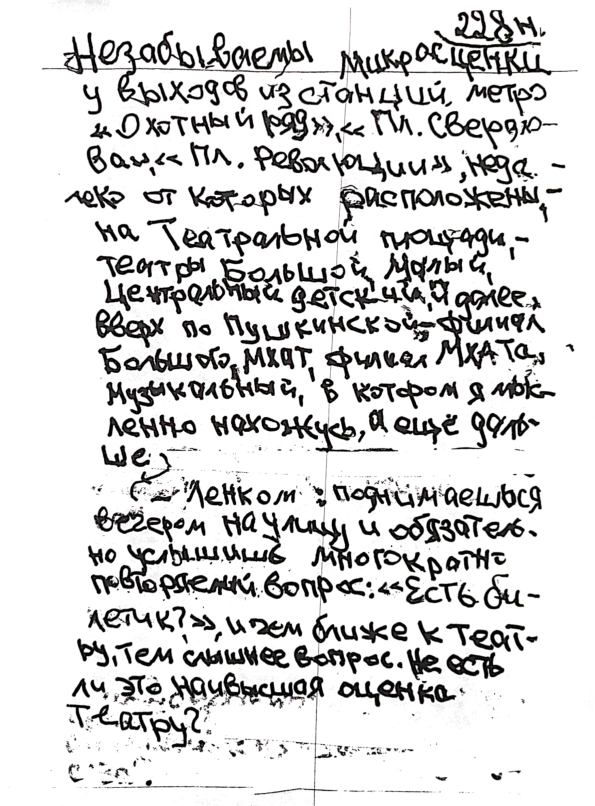 228н.
Незабываемы микросценки
у выходов из станций метро
«Охотный ряд», « Пл. Свердло-
ва», « Пл. Революции», неда-
леко от которых расположены,-
на Театральной площади,-
театры Большой, Малый,
Центральный детский, и далее,
вверх по Пушкинской-филиал
Большого, МХАТ, филиал МХАТа,
Музыкальный, в котором я мыс-
ленно нахожусь, а ещё даль-
ше
- Ленком : поднимаешься
вечером на улицу и обязатель-
но услышишь многократно
повторяемый вопрос: «Есть би-
летик?», и чем ближе к теат-
ру, тем слышнее вопрос. Не есть
ли это наивысшая оценка
театру?